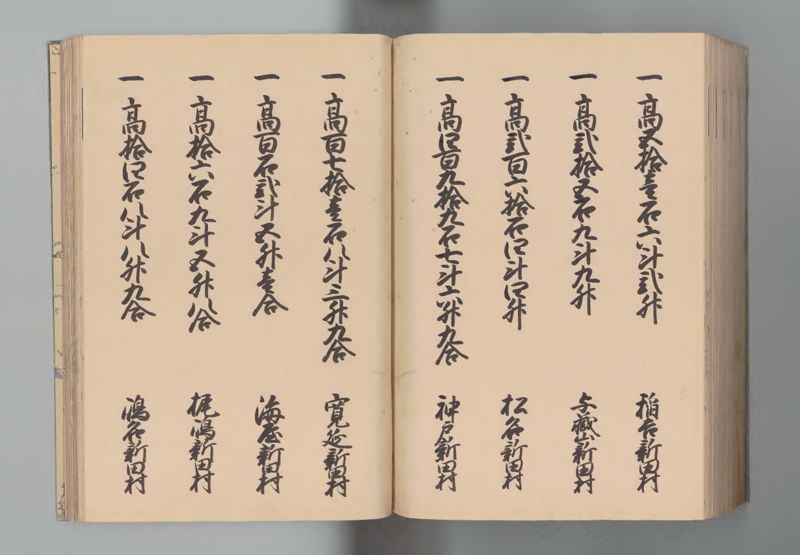 一高五拾壱石六斗弐升 稲吉新田村
一高弐拾五石九斗九升 与蔵山新田村
一高弐百六拾石四斗四升 松名新田村
一高四百九拾九石七斗六升九合 神戸新田村
一高百七拾壱石八斗三升九合 寛延新田村
一高百石弐斗五升壱合 海屋新田村
一高拾六石九斗五升八合 梶嶋新田村
一高拾四石八斗八升九合 鴻名新田村